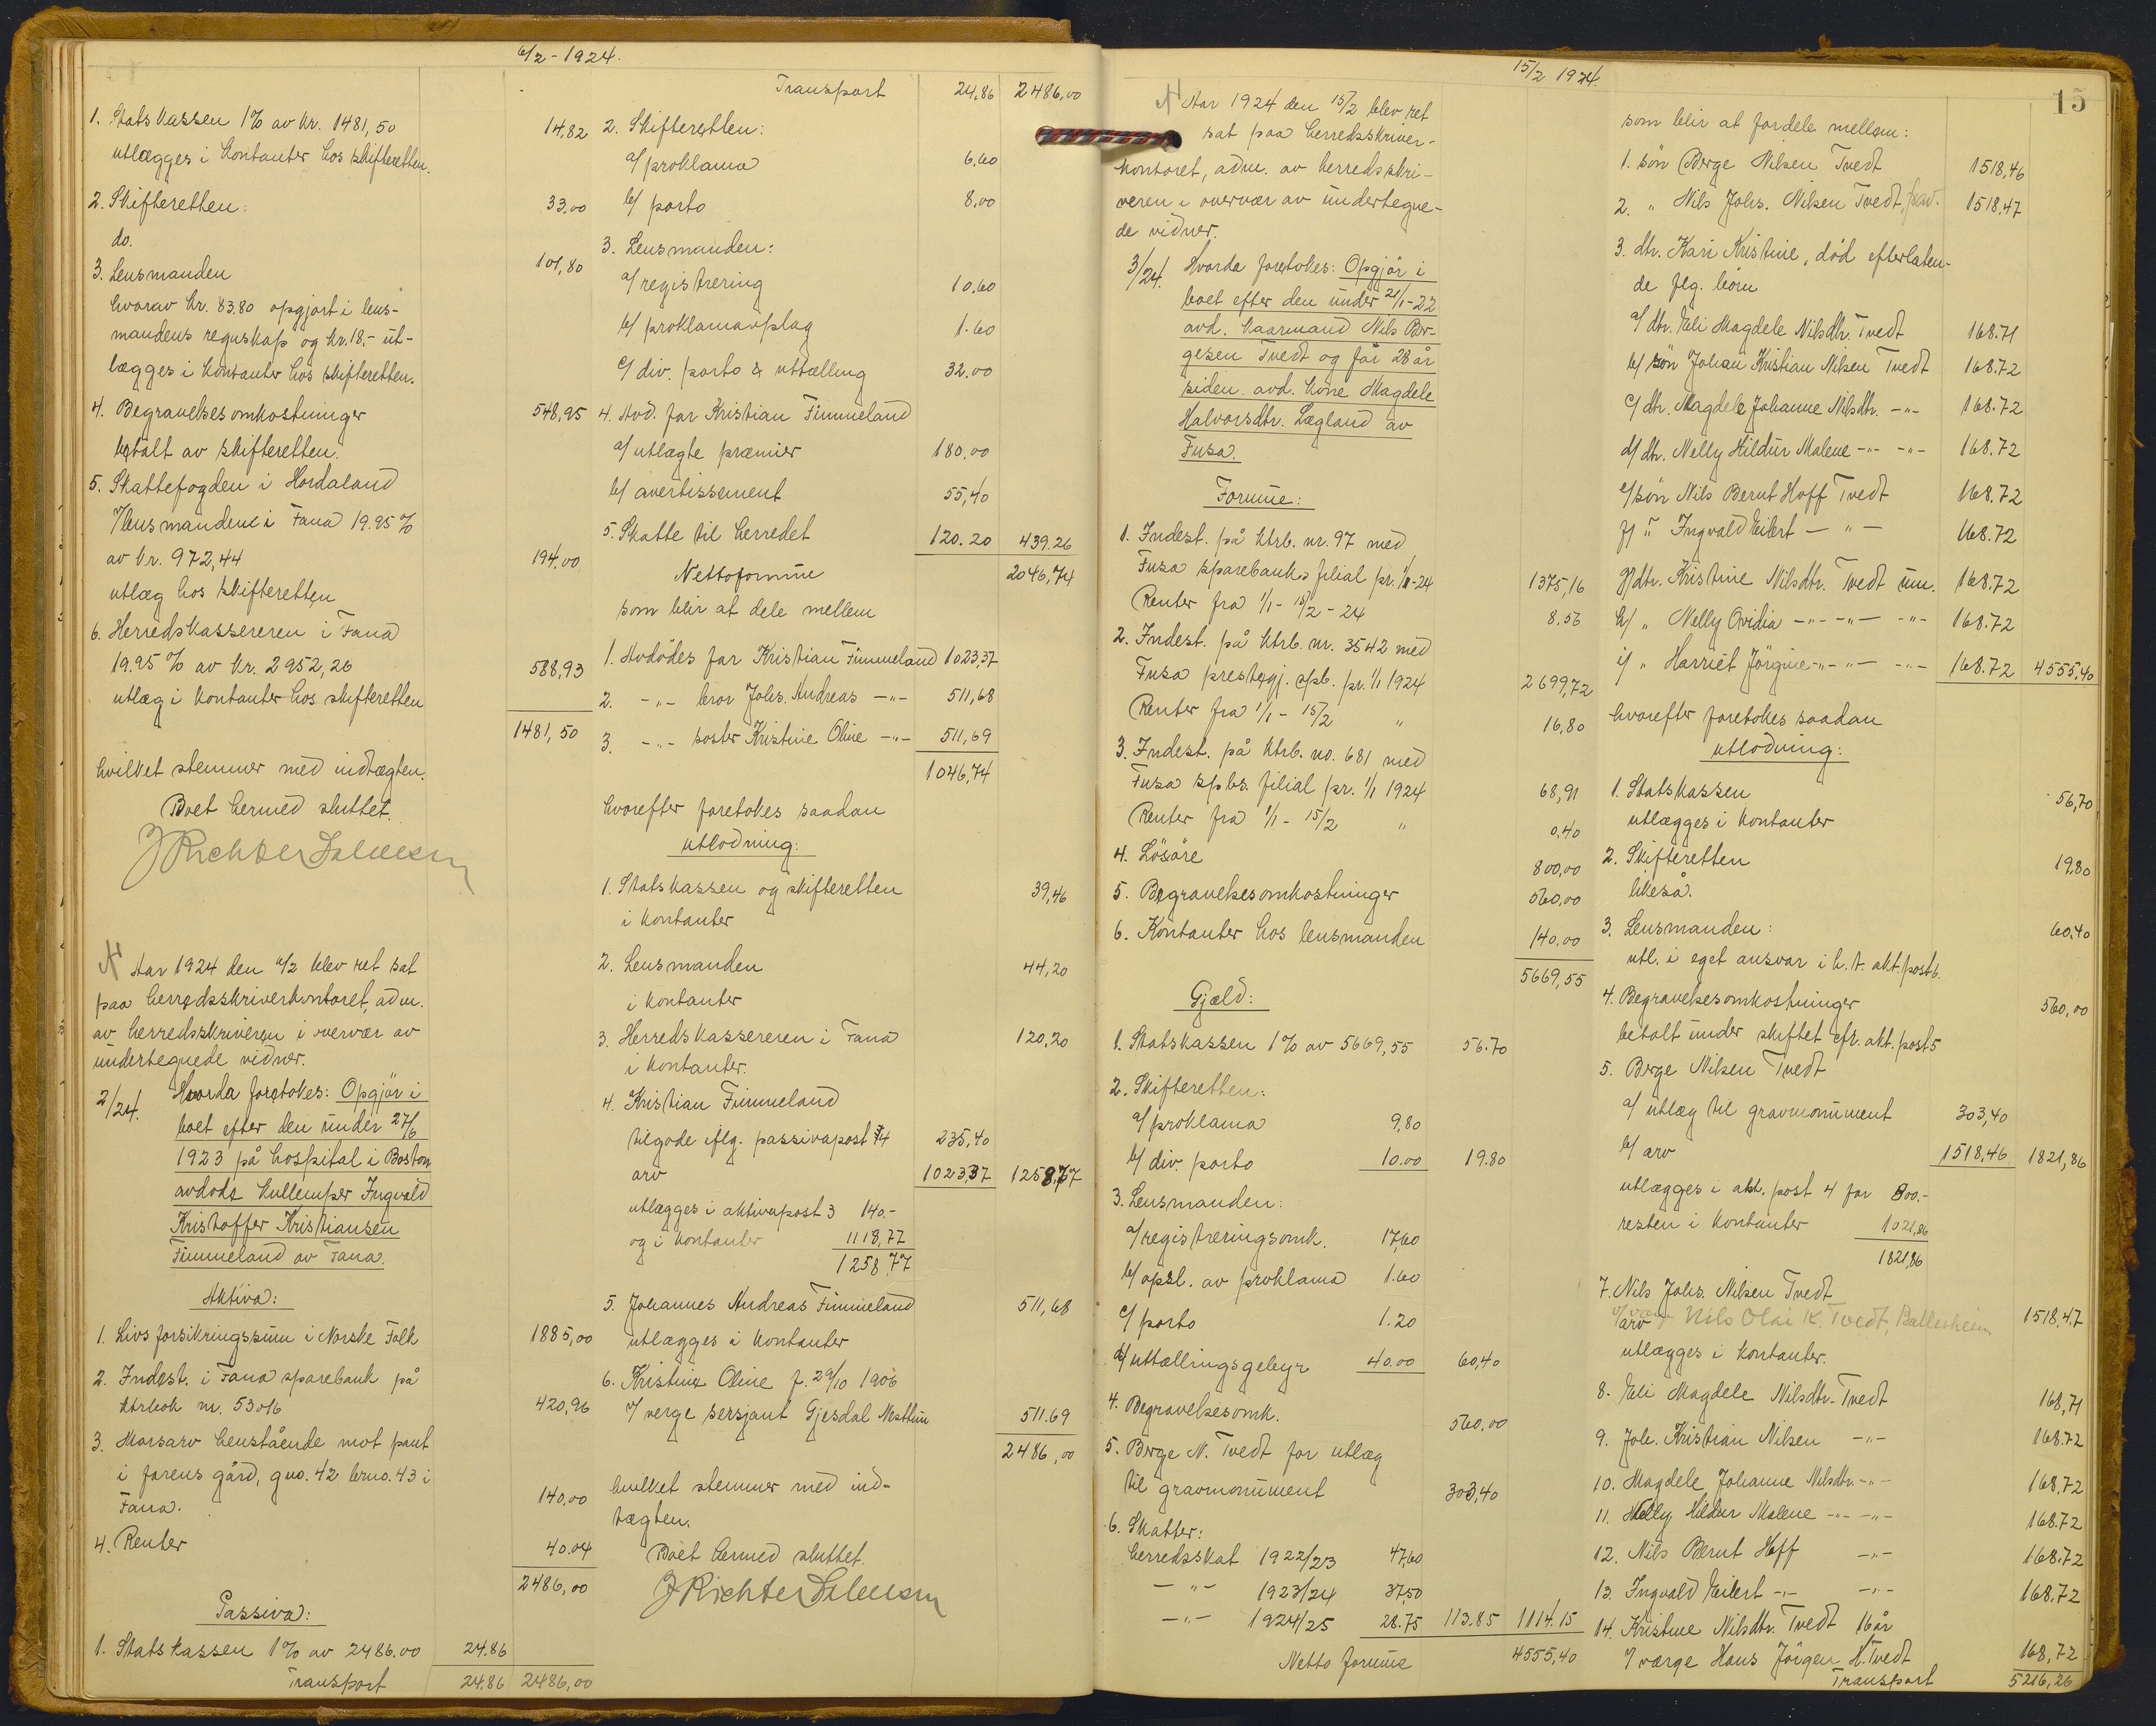 6/2 - 1924.
1. Statskassen 1% av kr. 1481,50 14,82
utlægges i kontanter hos skifteretten.
2. Skifteretten: 33,00
do.
3. Lensmanden 101,80
hvorav kr. 83.80 opgjort i lens-
mandens regnskap og kr. 18,- ut-
lægges i kontanter hos skifteretten.
4. Begravelsesomkostninger 548,95
betalt av skifteretten.
5. Skattefogden i Hordaland
v/ lensmanden i Fana 19.95%
av kr. 972,44 194,00
utlæg hos skifteretten
6. Herredskassereren i Fana
19.95% av kr. 2952,26 588,93
utlæg i kontanter hos skifteretten
1481,50
hvilket stemmer med indtægten.
Boet hermed sluttet.
J Richter Salvesen
N Aar 1924 den 6/2 blev ret sat
paa herredsskriverkontoret, adm.
av herredsskriveren i overvær av
undertegnede vidner.
2/24. Hvorda foretokes: Opgjör i
boet efter den under 27/6
1923 på hospital i Boston
avdöde kullemper Ingvald
Kristoffer Kristiansen
Fimmeland av Fana.
Aktiva:
1. Livsforsikringssum i Norske Folk 1885,00
2. Indest. i Fana sparebank på
ktrbok nr. 5306 420,96
3. Morsarv henstående mot pant
i farens gård, gno. 42 brno. 43 i
Fana. 140,00
4. Renter 40.04
2486,00
Passiva:
1. Statskassen 1% av 2486.00 24.86
Transport 24.86 2486,00
Transport 24,86 2486,00
2. Skifteretten:
a/ proklama 6,60
b/ porto 8,00
3. Lensmanden:
a/ registrering 10.60
b/ proklamaopslag 1.60
c/ div. porto & uttælling 32.00
4. Avd. far Kristian Fimmeland
a/ utlagte præmier 180.00
b/ avertissement 55,40
5. Skatte til herredet 120.20 439.26
Nettoformue 2046,74
som blir at dele mellem
1. Avdödes far Kristian Fimmeland 1023,37
2. -"- bror Johs. Andreas -"- 511,68
3. -"- söster Kristine Oline -"- 511,69
1046,74
hvorefter foretokes saadan
utlodning:
1. Statskassen og skifteretten 39,46
i kontanter
2. Lensmanden 44,20
i kontanter
3. Herredskassereren i Fana 120,20
i kontanter.
4. Kristian Fimmeland
tilgode iflg. passivapost 4 235,40
arv 1023,37 1258,77
utlægges i aktivapost 3 140.-
og i kontanter 1118,77
1258,77
5. Johannes Andreas Fimmeland 511,68
utlægges i kontanter
6. Kristine Oline f. 29/10 1906
v/ verge sersjant Gjesdal Nesttun 511.69
2486,00
hvilket stemmer med ind-
tægten.
Boet hermed sluttet.
J Richter Salvesen
15/2 1924.
15
N Aar 1924 den 15/2 blev ret
sat paa herredsskriver-
kontoret, adm. av herredsskri-
veren i overvær av undertegne-
de vidner.
3/24. Hvorda foretokes: Opgjör i
boet efter den under 21/1-22
avd. kaarmand Nils Ber-
gesen Tvedt og for 28 år
siden avd. kone Magdele
Halvorsdtr. Lægland av
Fusa.
Formue:
1. Indest. på ktrb. nr. 97 med
Fusa sparebanks filial pr. 1/1-24 1375,16
Renter fra 1/1 - 15/2 - 24 8.56
2. Indest. på ktrb. nr. 3542 med
Fusa prestegj. spb. pr. 1/1 1924 2699,72
Renter fra 1/1 - 15/2 " 16,80
3. Indest. på ktrb. no. 681 med
Fusa spbs. filial pr. 1/1 1924 68,91
Renter fra 1/1 - 15/2 " 0,40
4. Lösöre 800,00
5. Begravelsesomkostninger 560,00
6. Kontanter hos lensmanden 140.00
5669,55
Gjæld:
1. Statskassen 1% av 5669,55 56.70
2. Skifteretten:
a/ proklama 9,80
b/ div. porto 10.00 19.80
3. Lensmanden:
a/ registreringsomk. 17,60
b/ opsl. av proklama 1.60
c/ porto 1.20
d/ uttællingsgebyr 40.00 60,40
4. Begravelsesomk. 560,00
5. Berge N. Tvedt for utlæg
til gravmonument 303,40
6. Skatter:
herredsskat 1922/23 47,60
-"- 1923/24 37,50
-"- 1924/25 28.75 113.85 1114.15
Netto formue 4555,40
som blir at fordele mellem:
1. sön Berge Nilsen Tvedt 1518,46
2. " Nils Johs. Nilsen Tvedt, frav. 1518,47
3. dtr. Kari Kristine, död efterlaten-
de flg. börn
a/ dtr. Eli Magdele Nilsdtr. Tvedt 168.71
b/ sön Johan Kristian Nilsen Tvedt 168.72
c/ dtr. Magdele Johanne Nilsdtr. -"- 168.72
d/ dtr. Nelly Hildur Malene -"- -"- 168.72
e/ sön Nils Bernt Hoff Tvedt 168.72
f/ " Ingvald Eilert -"- 168.72
g/ dtr. Kristine Nilsdtr. Tvedt um. 168.72
h/ " Nelly Ovidia -"- -"- -"- 168.72
i/ " Harriet Jörgine -"- -"- -"- 168.72 4555,40
hvorefter foretokes saadan
utlodning:
1. Statskassen 56,70
utlægges i kontanter
2. Skifteretten 19,80
likeså.
3. Lensmanden: 60,40
utl. i eget ansvar i h.t. akt. post 6.
4. Begravelsesomkostninger 560,00
betalt under skiftet cfr. akt. post 5
5. Berge Nilsen Tvedt
a/ utlæg til gravmonument 303,40
b/ arv 1518,46 1821,86
utlægges i akt. post 4 for 800.-
resten i kontanter 1021,86
1821,86
7. Nils Johs. Nilsen Tvedt
arv Nils Olai K. Tvedt, 1518,47
utlægges i kontanter.
8. Eli Magdele Nilsdtr. Tvedt 168,71
9. Joh. Kristian Nilsen -"- 168.72
10. Magdele Johanne Nilsdtr. -"- 168,72
11. Nelly Hildur Malene -"- -"- 168.72
12. Nils Bernt Hoff -"- 168.72
13. Ingvald Eilert -"- -"- 168.72
14. Kristine Nilsdtr. Tvedt 16 år
v/ værge Hans Jörgen H. Tvedt 168,72
Transport 5216,26